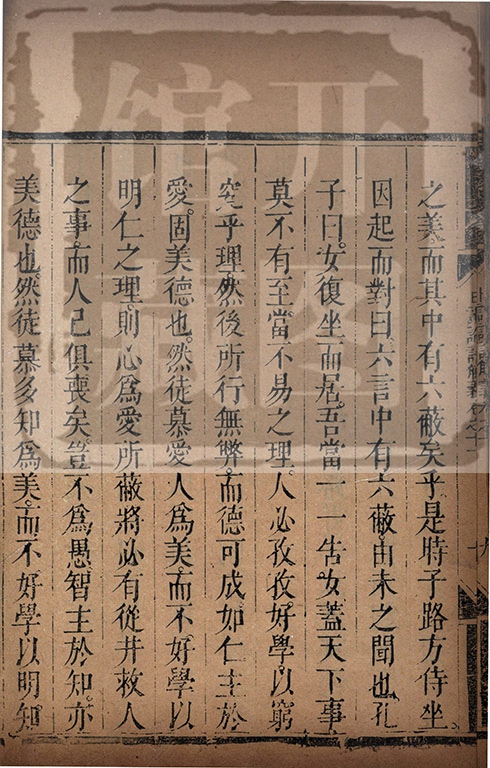 之美而其中有六蔽矣乎是時子路方侍坐
因起而對曰六言中有六蔽由未之聞也孔
子曰女復坐而居吾當一一告女蓋天下事
莫不有至當不易之理人必孜孜好學以窮
究乎理然後所行無弊而德可成如仁主於
愛固美德也然徒慕愛人爲美而不好學以
明仁之理則心爲愛所蔽將必有從井救人
之事而人己俱喪矣豈不爲愚智主於知亦
美德也然徒慕多知爲美而不好學以明知